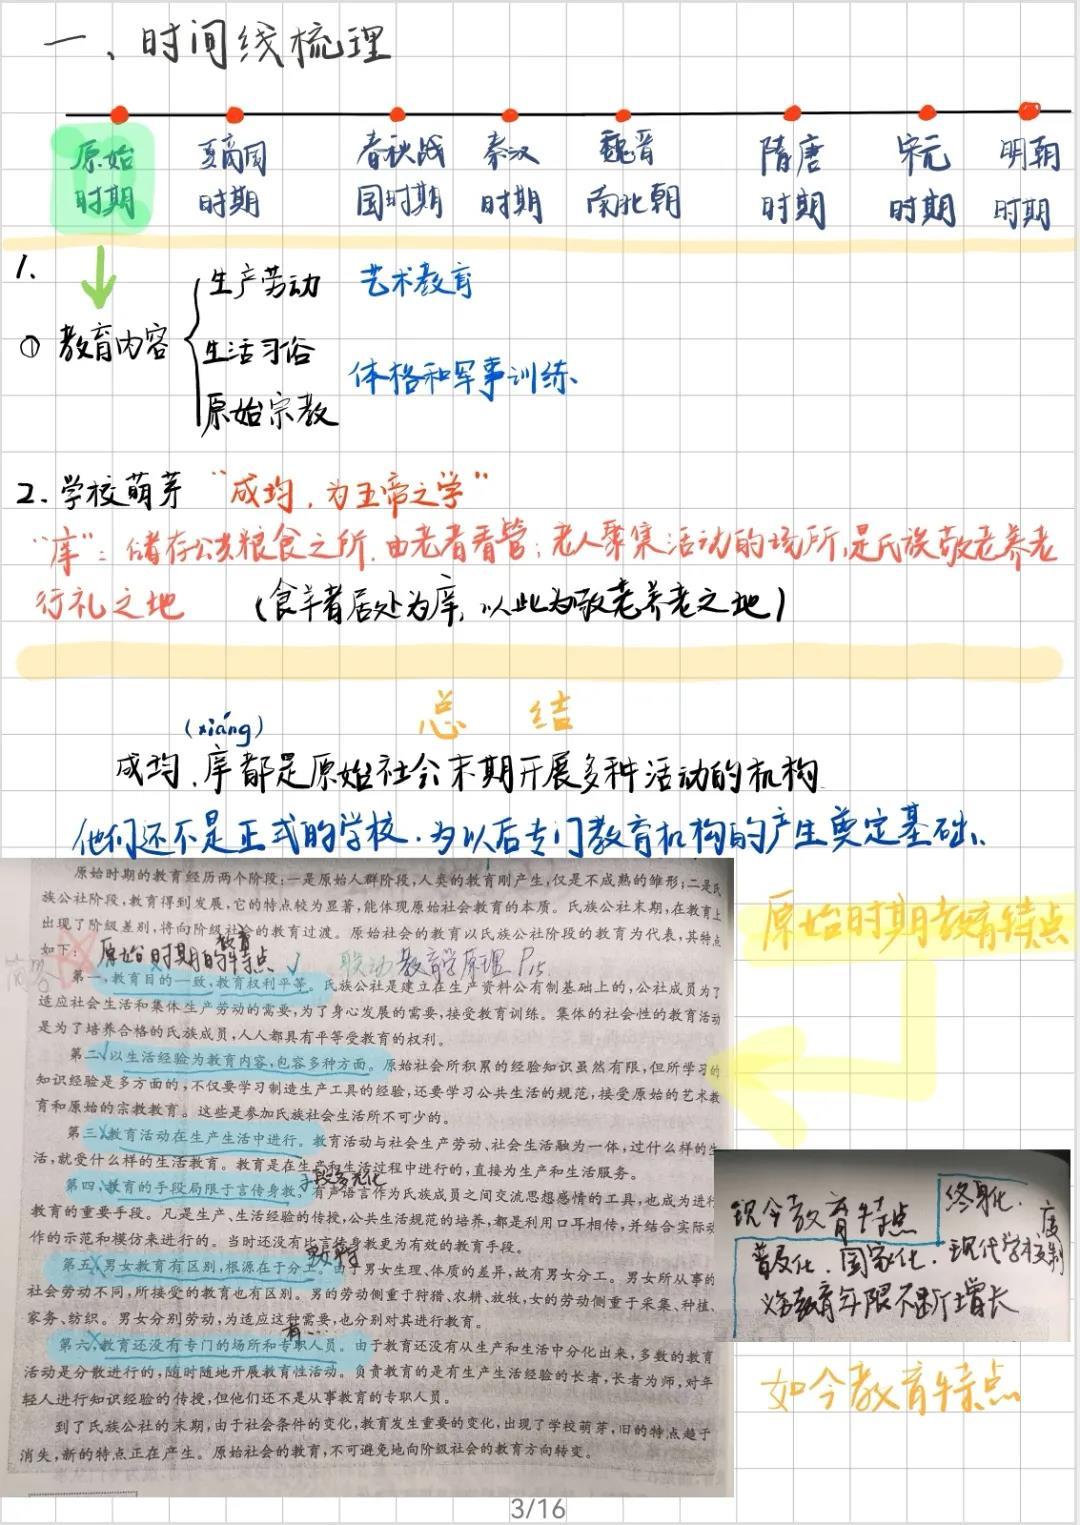 一、时间线梳理
原始时期 夏商周时期 春秋战国时期 秦汉时期 魏晋南北朝 隋唐时期 宋元时期 明朝时期
1.
① 教育内容
生产劳动 艺术教育
生活习俗
体格和军事训练
原始宗教
2. 学校萌芽 “成均,为五帝之学”
“庠”:储存公共粮食之所,由老者看管;老人聚集活动的场所,是氏族敬老养老
行礼之地 (食羊者居处为庠,以此为敬老养老之地)
总结
(xiáng)
成均、庠都是原始社会末期开展多种活动的机构
他们还不是正式的学校,为以后专门教育机构的产生奠定基础、
原始时期的教育经历两个阶段:一是原始人群阶段,人类的教育刚产生,仅是不成熟的雏形;二是氏
族公社阶段,教育得到发展,它的特点较为显著,能体现原始社会教育的本质。氏族公社末期,在教育上
出现了阶级差别,将向阶级社会的教育过渡。原始社会的教育以氏族公社阶段的教育为代表,其特点
如下:
原始时期的教育特点
联动 教育学原理 P15
第一,教育目的一致,教育权利平等。氏族公社是建立在生产资料公有制基础上的,公社成员为了
适应社会生活和集体生产劳动的需要,为了身心发展的需要,接受教育训练。集体的社会性的教育活动
是为了培养合格的氏族成员,人人都具有平等受教育的权利。
第二,以生活经验为教育内容,包容多种方面。原始社会所积累的经验知识虽然有限,但所学习的
知识经验是多方面的,不仅要学习制造生产工具的经验,还要学习公共生活的规范,接受原始的艺术教
育和原始的宗教教育。这些是参加氏族社会生活所不可少的。
第三,教育活动在生产生活中进行。教育活动与社会生产劳动、社会生活融为一体,过什么样的生
活,就受什么样的生活教育。教育是在生产和生活过程中进行的,直接为生产和生活服务。
手段多元化
第四,教育的手段局限于言传身教。有声语言作为氏族成员之间交流思想感情的工具,也成为进行
教育的重要手段。凡是生产、生活经验的传授,公共生活规范的培养,都是利用口耳相传,并结合实际动
作的示范和模仿来进行的。当时还没有比言传身教更为有效的教育手段。
第五,男女教育有区别,根源在于分工。由于男女生理、体质的差异,故有男女分工。男女所从事的
社会劳动不同,所接受的教育也有区别。男的劳动侧重于狩猎、农耕、放牧,女的劳动侧重于采集、种植、
家务、纺织。男女分别劳动,为适应这种需要,也分别对其进行教育。
有……
第六,教育还没有专门的场所和专职人员。由于教育还没有从生产和生活中分化出来,多数的教育
活动是分散进行的,随时随地开展教育性活动。负责教育的是有生产生活经验的长者,长者为师,对年
轻人进行知识经验的传授,但他们还不是从事教育的专职人员。
到了氏族公社的末期,由于社会条件的变化,教育发生重要的变化,出现了学校萌芽,旧的特点趋于
消失,新的特点正在产生。原始社会的教育,不可避免地向阶级社会的教育方向转变。
原始时期教育特点
现今教育特点 终身化、
普及化、国家化、现代学校制度
义务教育年限不断增长
如今教育特点
3/16